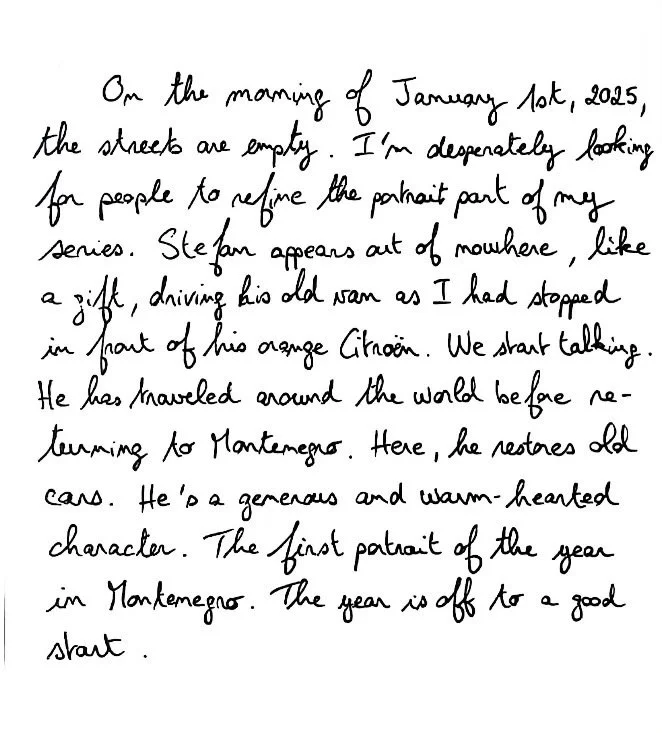 On the morning of January 1st, 2025,
the streets are empty. I'm desperately looking
for people to refine the portrait part of my
series. Stefan appears out of nowhere, like
a gift, driving his old van as I had stopped
in front of his orange Citroën. We start talking.
He has traveled around the world before re-
turning to Montenegro. Here, he restores old
cars. He's a generous and warm-hearted
character. The first portrait of the year
in Montenegro. The year is off to a good
start.